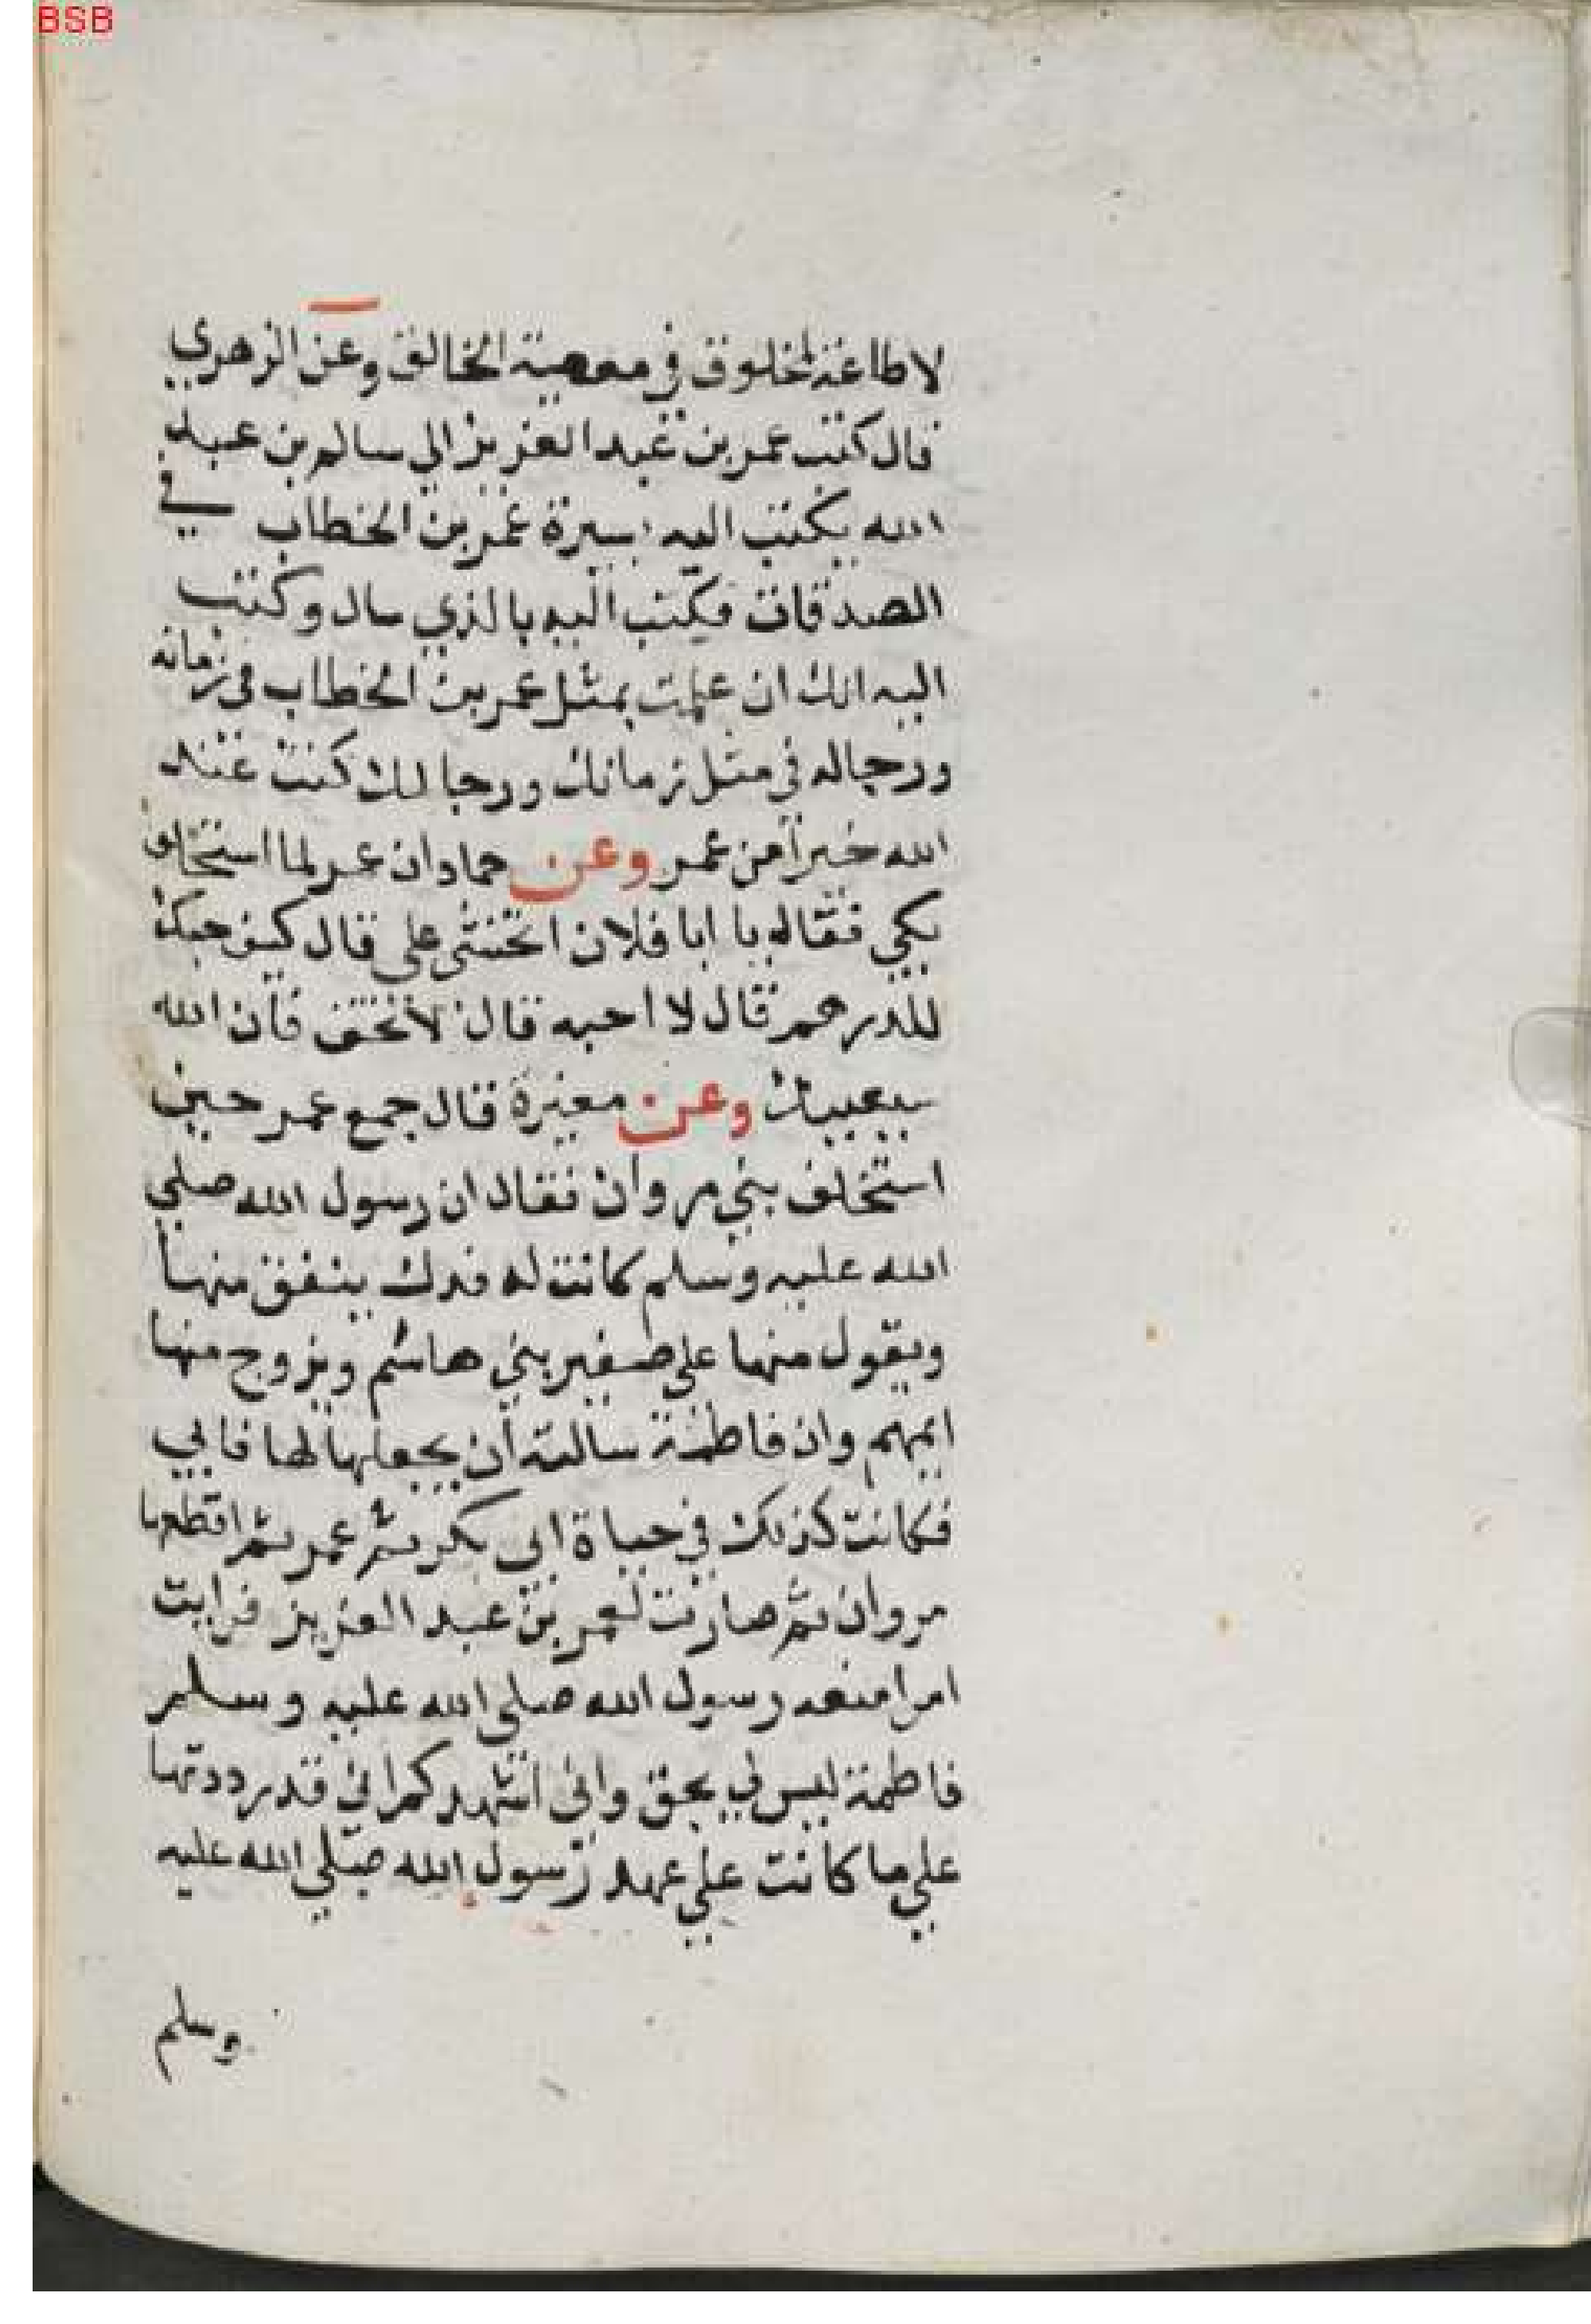 BSB
لاطاعة لمخلوق في معصية الخالق وعن الزهري
قال كتب عمر بن عبد العزيز الي سالم بن عبد
الله يكتب اليه بسيرة عمر بن الخطاب في
الصدقات فكتب اليه بالذي سال وكتب
اليه انك ان عملت بمثل عمر بن الخطاب في زمانه
ورجاله في مثل زمانك ورجالك كنت عند
الله خيرا من عمر وعن حماد ان عمر لما استخلف
بكي فقاله يا ابا فلان اتخشى على قال كيف حبك
للدرهم قال لا احبه قال لا تخف فان الله
سيعينك وعن مغيرة قال جمع عمر حين
استخلف بني مروان فقال ان رسول الله صلي
الله عليه وسلم كانت له فدك ينفق منها
ويقول منها علي صغير بني هاشم ويزوج منها
ايمهم وان فاطمة سالته ان يجعلها لها فابي
فكانت كذلك في حياة ابي بكر ثم عمر ثم اقطعها
مروان ثم صارت لعمر بن عبد العزيز فرايت
امرا منعه رسول الله صلي الله عليه وسلم
فاطمة ليس لي بحق واني اشهدكم اني قد رددتها
علي ما كانت علي عهد رسول الله صلي الله عليه
وسلم